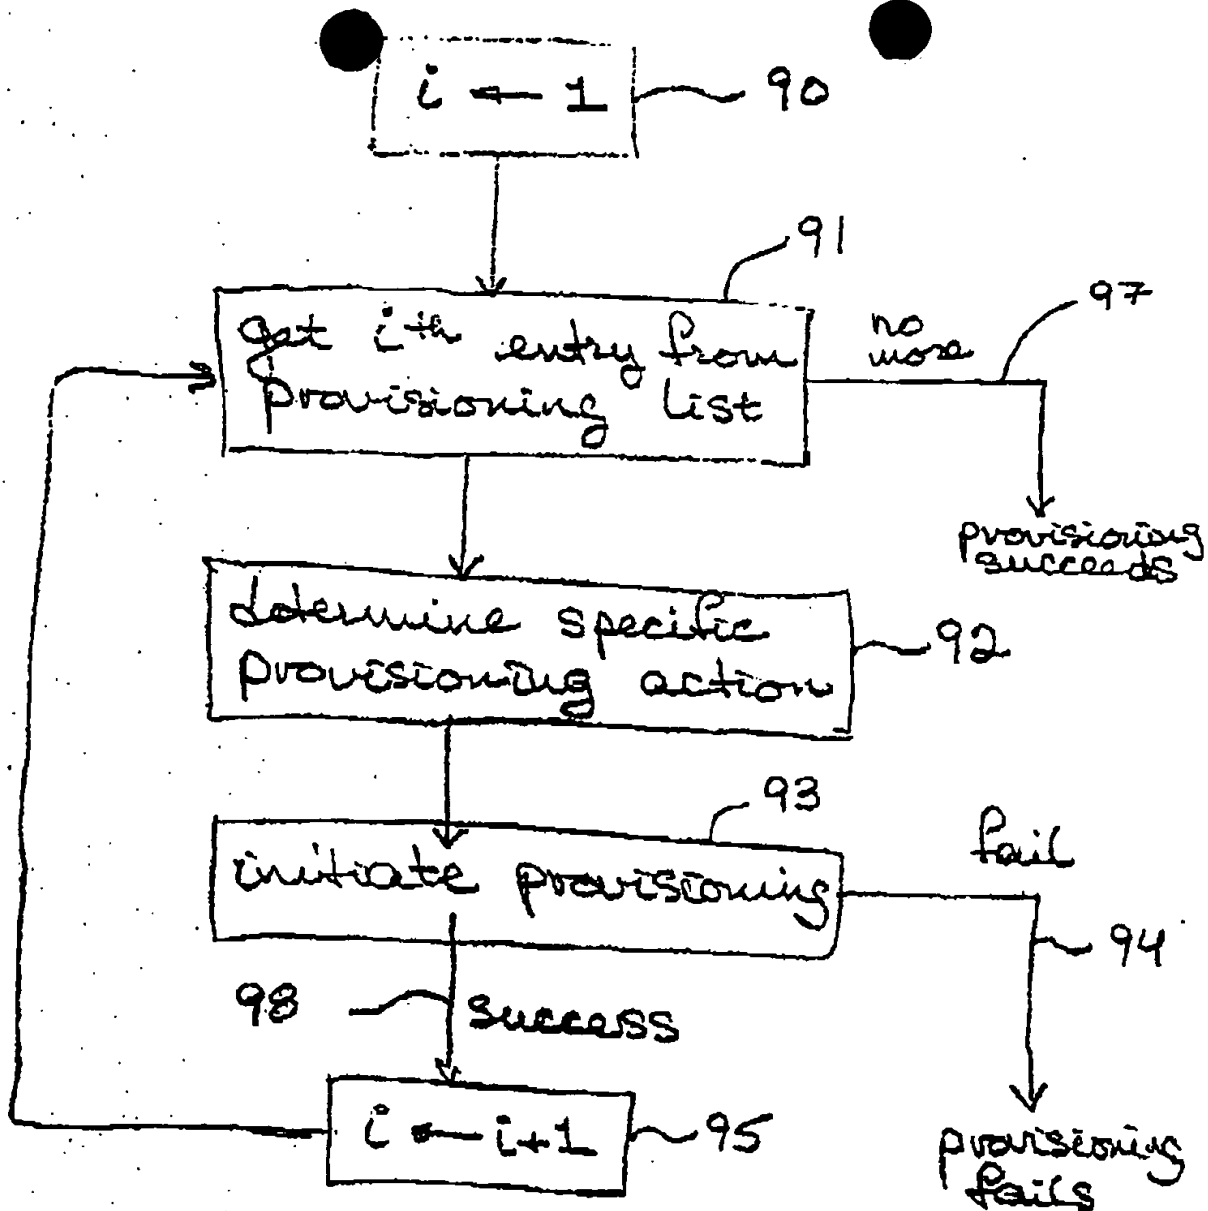 i ← 1
90
91
get ith entry from
provisioning list
no
more
97
provisioning
succeeds
determine specific
provisioning action
92
93
initiate provisioning
fail
94
98
success
i ← i+1
95
provisioning
fails